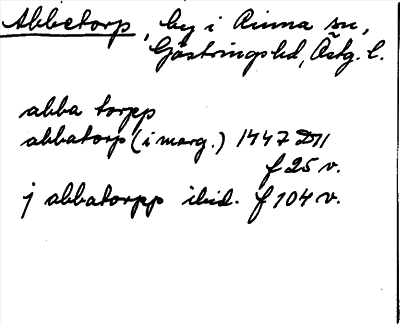 Abbetorp, by i Rinna sn,
Göstringshd, Östg. l.
abba torpp
abbatorp (i marg.) 1447 D11
f 25 v.
j abbatorpp ibid. f 104 v.